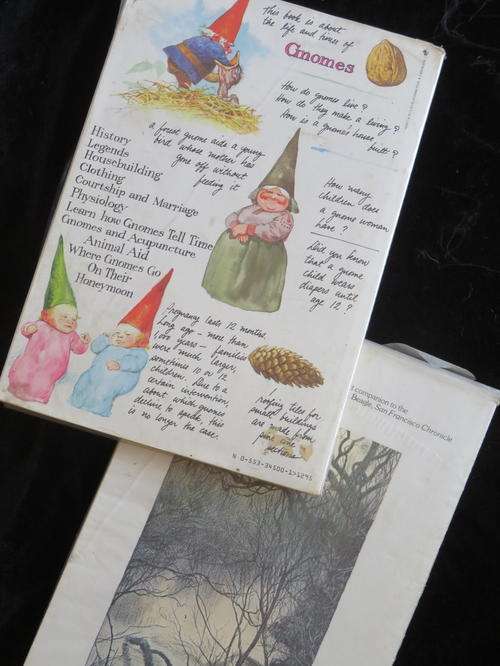 This book is about
the life and times of
Gnomes
How do gnomes live?
How do they make a living?
How is a gnome's house
built?
a forest gnome aids a young
bird whose mother has
gone off without
feeding it
History
Legends
Housebuilding
Clothing
Courtship and Marriage
Physiology
Learn how Gnomes Tell Time
Gnomes and Acupuncture
Animal Aid
Where Gnomes Go
On Their
Honeymoon
How many
children does
a gnome woman
have?
Did you know
that a gnome
child wears
diapers until
age 12?
Pregnancy lasts 12 months.
Long ago - more than
1,000 years - families
were much larger,
sometimes 10 or 12
children. Due to a
certain intervention,
about which gnomes
decline to speak, this
is no longer the case.
roofing tiles for
small buildings
are made from
pine cone
sections
N 0-553-34500-1>1295
companion to the
Beagle, San Francisco Chronicle